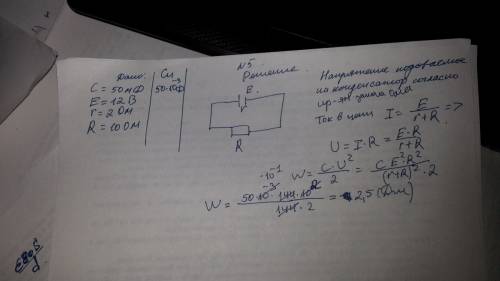 N5
Дано:
C = 50 мФ
E = 12 В
r = 2 Ом
R = 10 Ом
Си
50·10⁻³Ф
Решение.
E.
R
Напряжение подаваемое
на конденсатор согласно
Ток в цепи I = E/(r+R) =>
U = I·R = E·R/(r+R)
W = C·U²/2 = C·E²·R²/((r+R)²·2)
W = 50·10⁻³·144·10²/(144·2) = 2,5 (Дж)